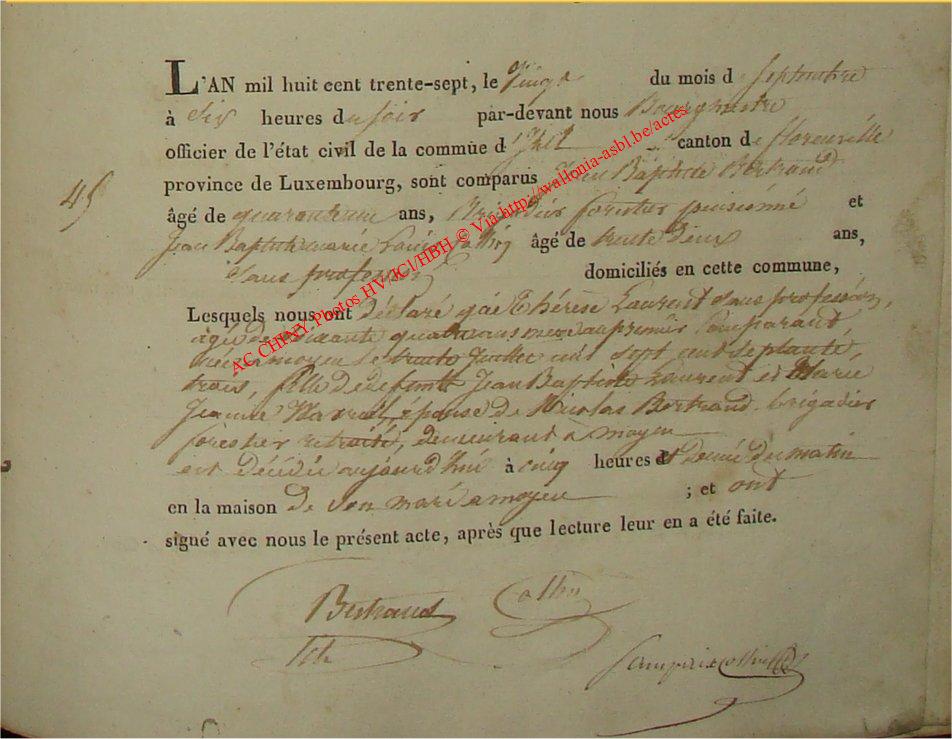 L'AN mil huit cent trente-sept, le Vingt du mois de septembre
à Six heures du soir par-devant nous Bourgmestre
officier de l'état civil de la commune d' canton de florenville
province de Luxembourg, sont comparus Jean Baptiste Bertrand
45
âgé de quarante un ans, Brigadier forestier pensionné et
Jean Baptiste marie Louis Collin âgé de trente deux ans,
Sans profession domiciliés en cette commune,
Lesquels nous ont déclaré que Thérèse Laurent sans profession,
agée de soixante quatre ans mere au premier Comparant,
née a moyen le trente Juillet mil sept cent septante
trois, fille de defunts Jean Baptiste Laurent et Marie
Jeanne épouse de Nicolas Bertrand brigadier
forestier retraité, demeurant a moyen
est décédée aujourd'hui à cinq heures et demie du matin
en la maison de son mari a moyen ; et ont
signé avec nous le présent acte, après que lecture leur en a été faite.
Bertrand Collin
AC CHINY Photos HV/ICI/HBH © Via http://wallonia-asbl.be/actes